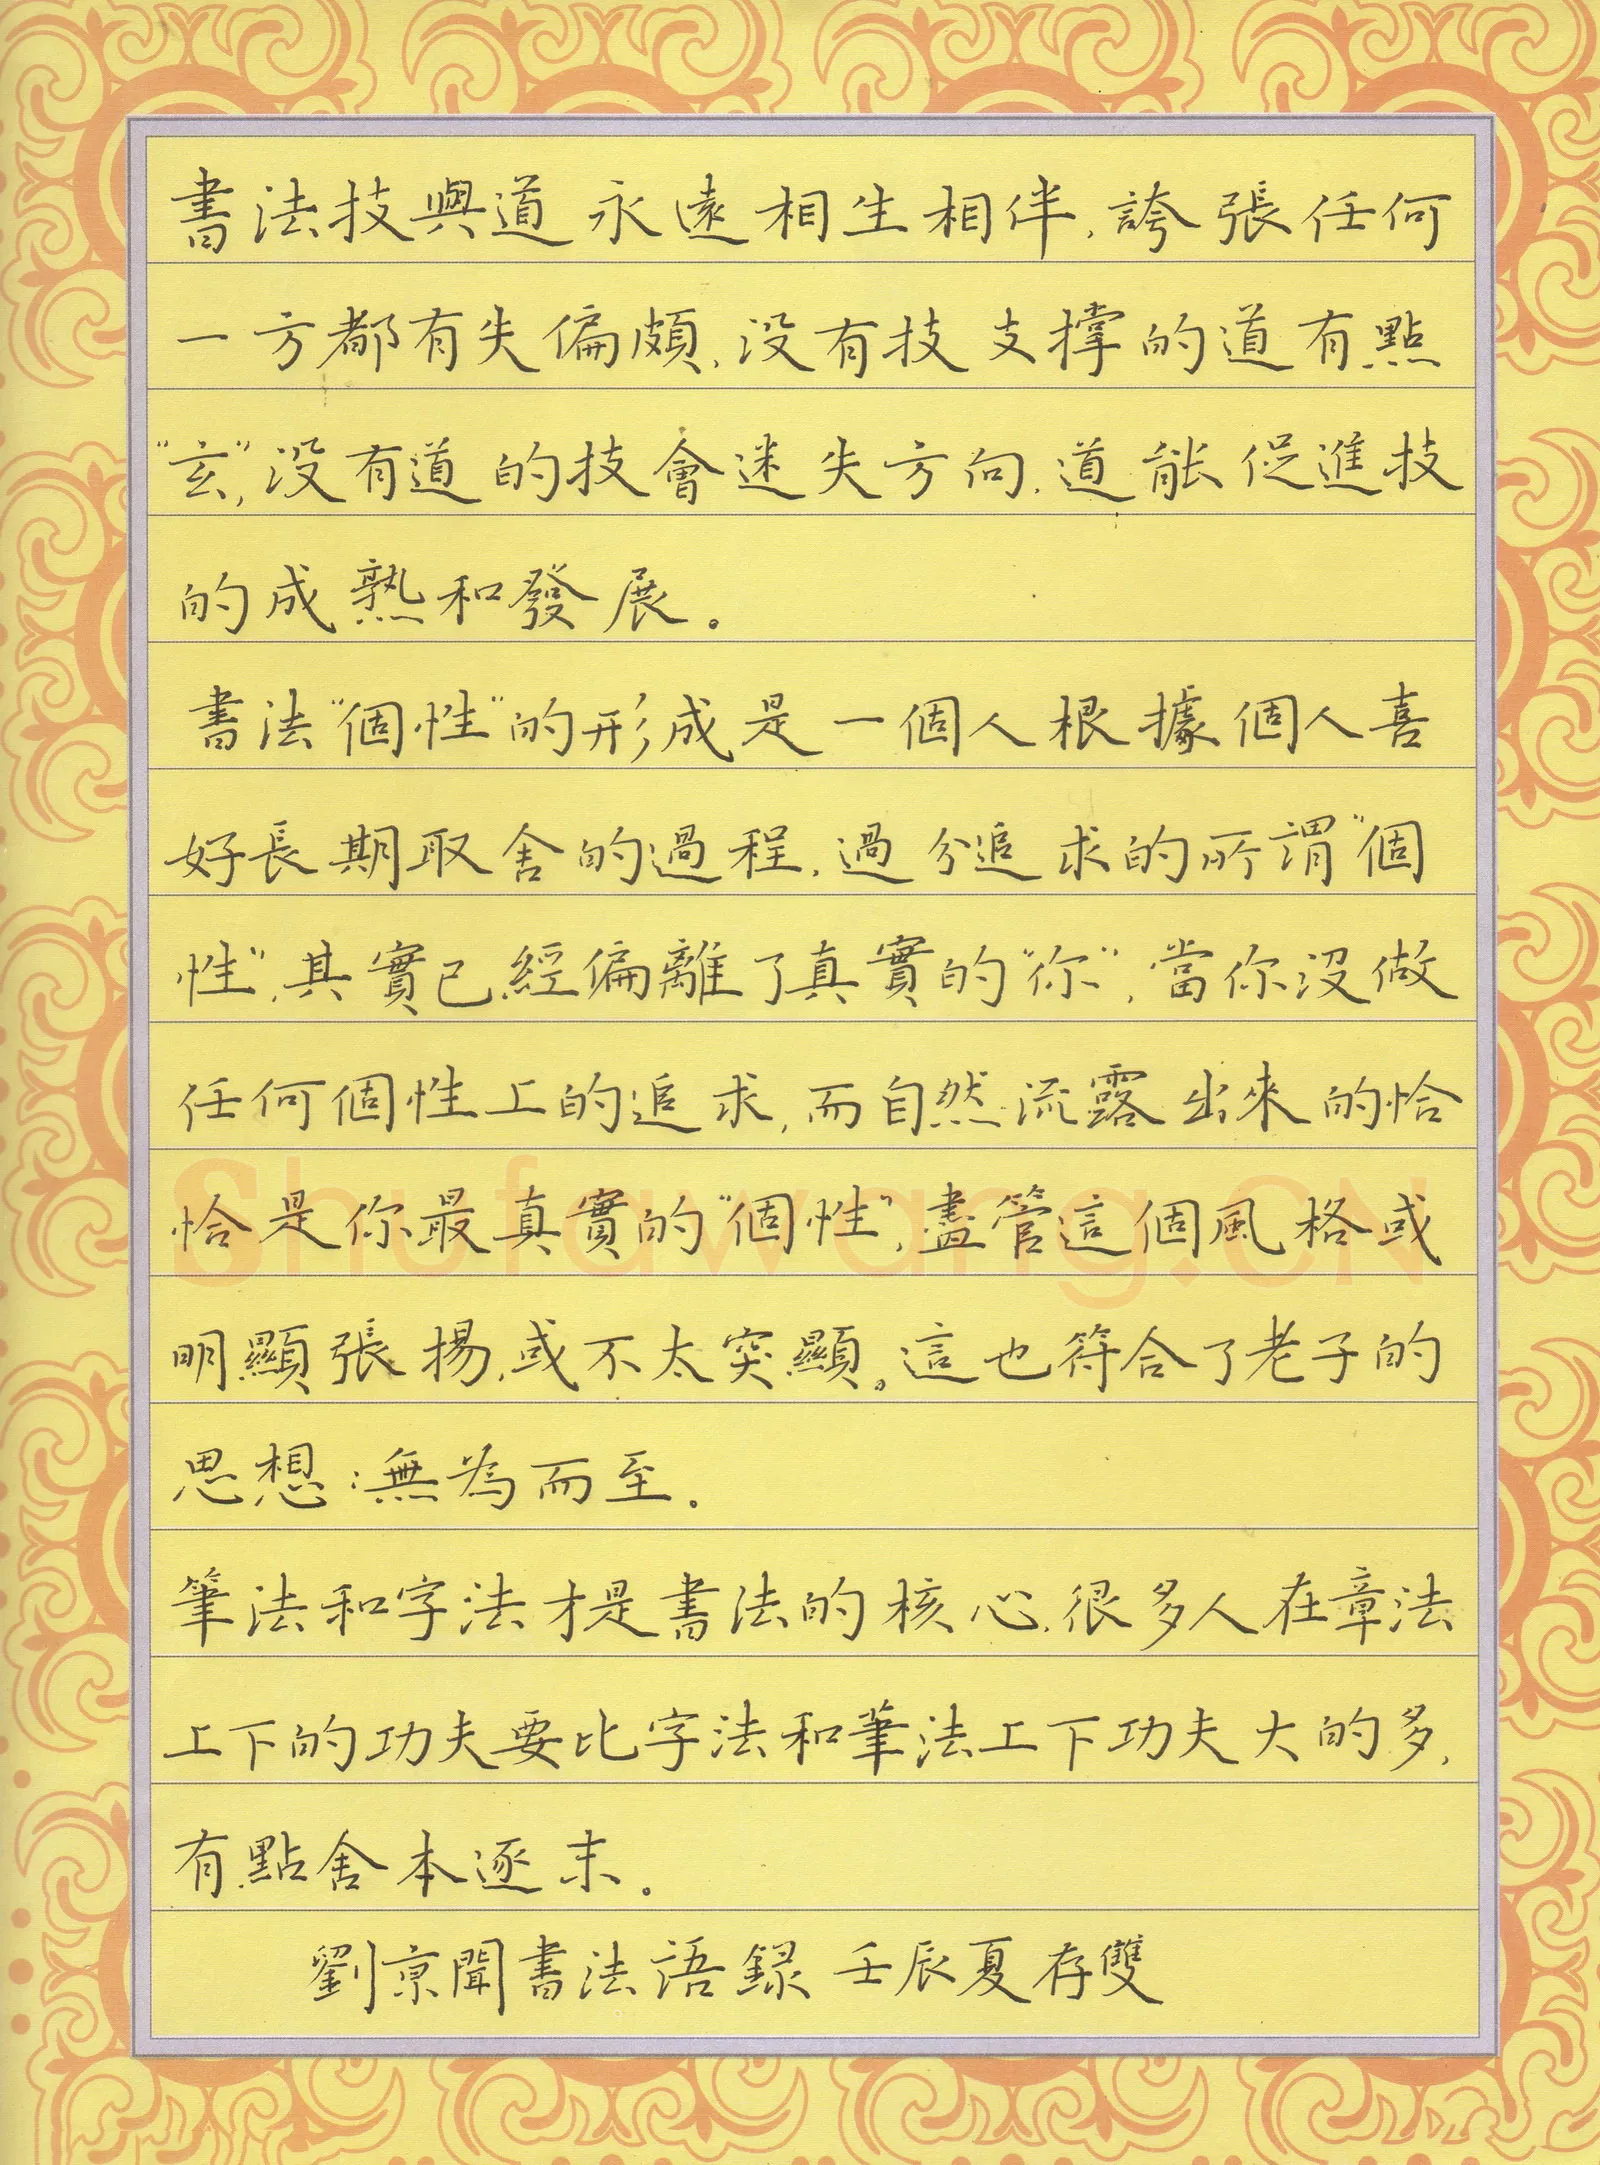 書法技與道永遠相生相伴,誇張任何
一方都有失偏頗,没有技支撐的道有點
“玄”,没有道的技會迷失方向,道能促進技
的成熟和發展。
書法“個性”的形成是一個人根據個人喜
好長期取舍的過程,過分追求的所謂“個
性”,其實已經偏離了真實的“你”,當你没做
任何個性上的追求,而自然流露出來的恰
恰是你最真實的“個性”,盡管這個風格或
明顯張揚,或不太突顯。這也符合了老子的
思想:無為而至。
筆法和字法才是書法的核心,很多人在章法
上下的功夫要比字法和筆法上下功夫大的多,
有點舍本逐末。
劉京聞書法語録 壬辰夏存雙
Shufawang.CN